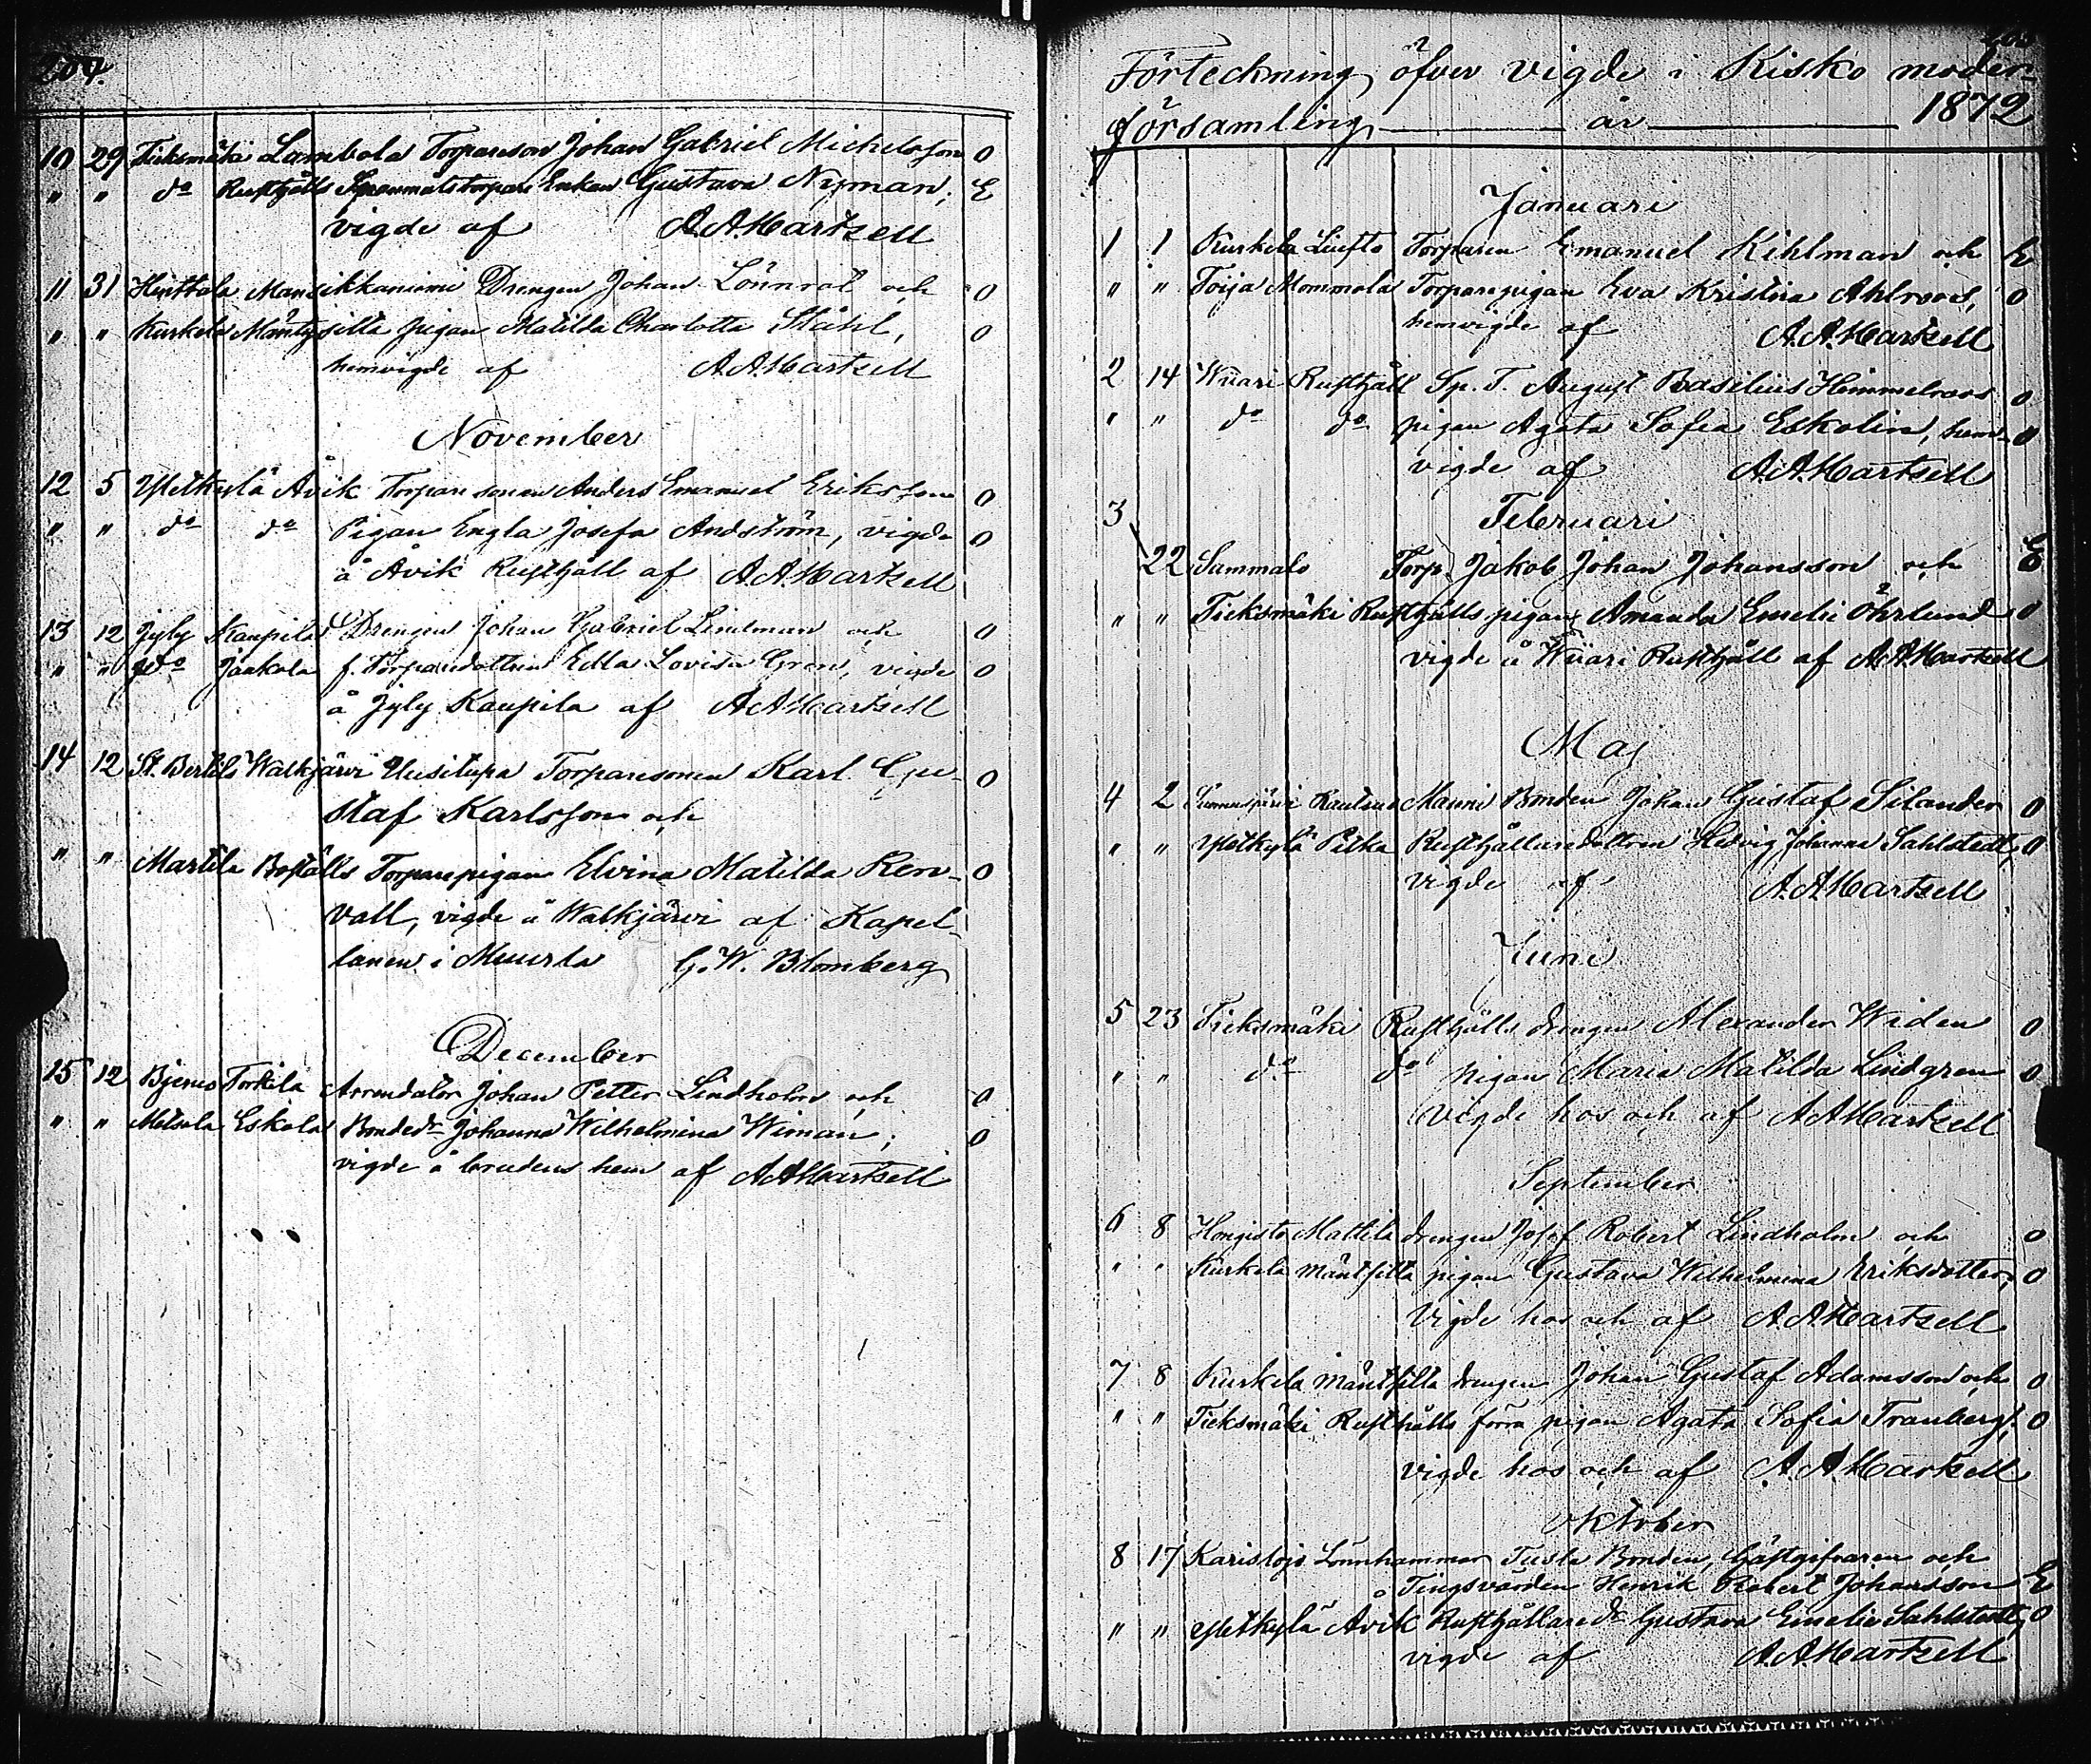 204.
10 29 Fiksmäki Lambola Torpareson Johan Gabriel Michelsson 0
" " do Rusthålls Spanmåls torpare Enkan Gustava Nyman; E
vigde af A.A.Hartzell
11 31 Hinttala Mansikkaniemi Drengen Johan Lönnrot och 0
" " Kurkela Mäntysilta pigan Matilda Charlotta Ståhl, 0
hemvigde af A.A.Hartzell
November
12 5 Ylletkylä Åvik Torpare sonen Anders Emanuel Eriksson 0
" " do do Pigan Engla Josefa Andström, vigde 0
å Åvik Rusthåll af A.A.Hartzell
13 12 Jyly Kaupila Drengen Johan Gabriel Lindman och 0
" " do Jaakola f. Torparedottren Edla Lovisa Gren, vigde 0
å Jyly Kaupila af A.A.Hartzell
14 12 St. Bertils Walkjärvi Uusitupa Torparesonen Karl Gu- 0
staf Karlsson och
" " Martila Boställs Torparepigan Elvina Matilda Ren- 0
vall, vigde å Walkjärvi af Kapel-
lanen i Muurla G.W. Blomberg
December
15 12 Bjerno Torkila Arrendator Johan Petter Lindholm och 0
" " Metsola Eskola Bonded:r Johanna Wilhelmina Wiman; 0
vigde å brudens hem af A.A.Hartzell
Förteckning öfver vigde i Kisko moder-
församling år 1872
Januari
1 1 Kurkela Liufto Torparen Emanuel Kihlman och E
" " Toija Mommola Torparepigan Eva Kristina Ahlroos, 0
hemvigde af A.A.Hartzell
2 14 Wiiari Rusthåll Sp. T. August Basilius Himmelroos 0
" " do do pigan Agata Sofia Eskolin, hem- 0
vigde af A.A.Hartzell
3 Februari
22 Sammalo Torp. Jakob Johan Johansson och E
" " Fieksmäki Rusthålls pigan Amanda Emelie Öhrlund 0
vigde å Wiiari Rusthåll af A.A.Hartzell
Maj
4 2 Rautsuo Mauni Bonden Johan Gustaf Silander 0
" " Ylletkylä Pitka Rusthållaredottren Hedvig Johanna Sahlstedt, 0
vigde af A.A.Hartzell
Juni
5 23 Fieksmäki Rusthålls drengen Alexander Widen 0
" " do do pigan Maria Matilda Lindgren 0
vigde hos och af A.A.Hartzell
September
6 8 Hongisto Mattila drengen Josef Robert Lindholm och 0
" " Kurkela Mäntsilta pigan Gustava Wilhelmina Eriksdotter, 0
vigde hos och af A.A.Hartzell
7 8 Kurkela Mäntsilta drengen Johan Gustaf Adamsson och 0
" " Fieksmäki Rusthålls förra pigan Agata Sofia Tranberg, 0
vigde hos och af A.A.Hartzell
Oktober
8 17 Karislojo Lönnhammar Tusla Bonden, Gästgifvaren och
Tingsvärden Henrik Robert Johansson E
" " Ylletkylä Åvik Rusthållared:r Gustava Emelie Sahlstedt, 0
vigde af A.A.Hartzell